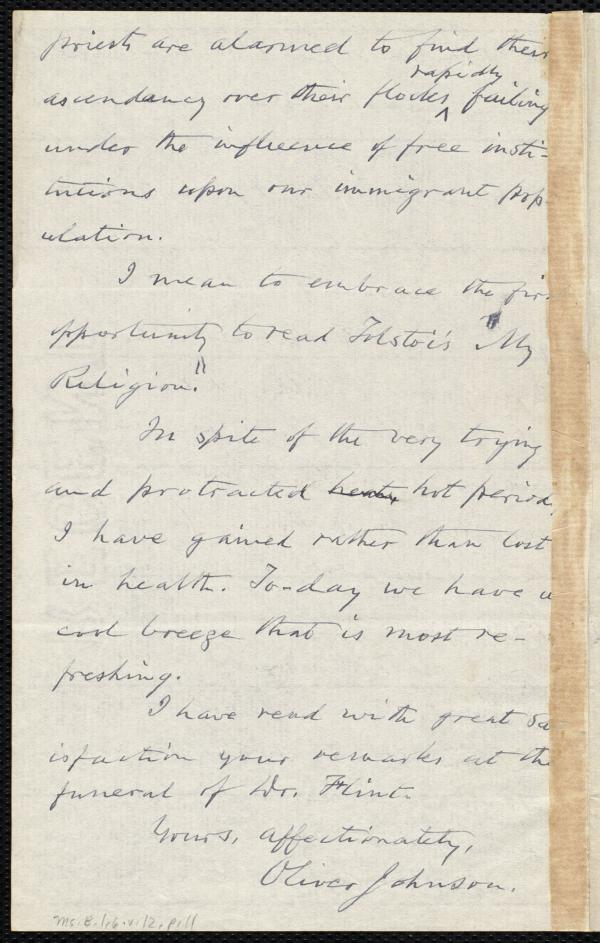 priests are alarmed to find their
rapidly
ascendancy over their flocks ^ failing
under the influence of free insti-
tutions upon our immigrant pop-
ulation.
I mean to embrace the fir
opportunity to read Tolstoi's "My
Religion."
In spite of the very trying
and protracted hot period,
I have gained rather than lost
in health. To-day we have a
cool breeze that is most re-
freshing.
I have read with great sa
isfaction your remarks at the
funeral of Dr. Flint.
Yours, affectionately,
Oliver Johnson.
Ms. B. 1.6. v. 12, p. 11